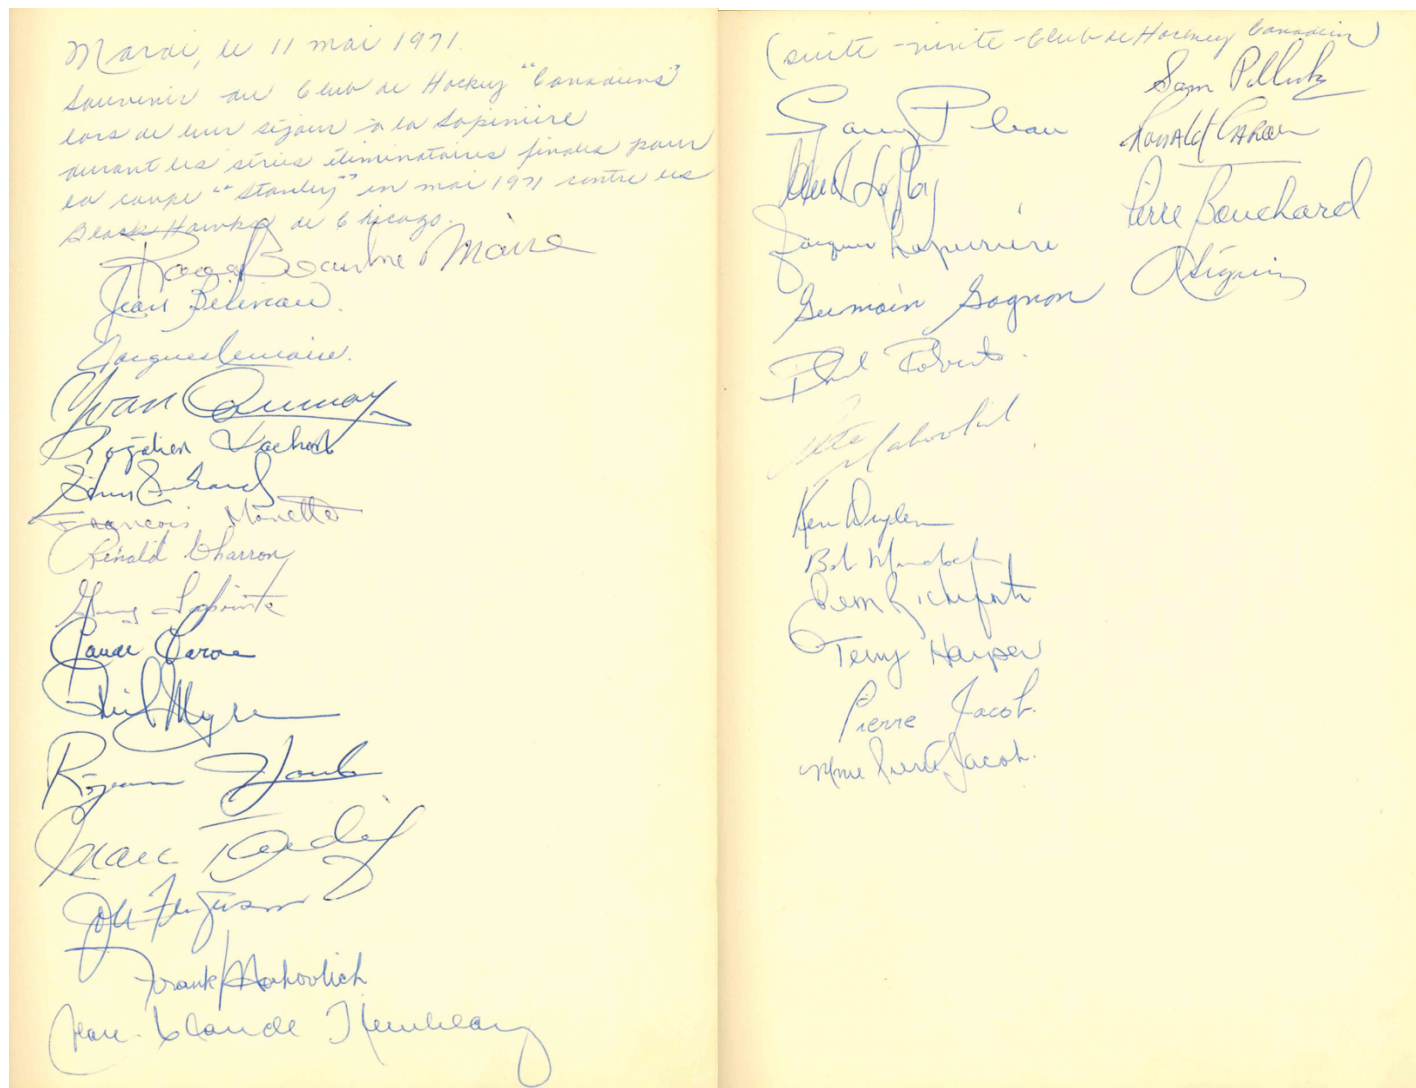 Mardi, le 11 mai 1971.
Souvenir du Club de Hockey "Canadiens"
lors de leur séjour à la Sapinière
durant les séries éliminatoires finales pour
la coupe "Stanley" en mai 1971 contre les
Black Hawks de Chicago.
Roger Beaulne Maire
Jean Béliveau.
Jacques Lemaire.
Yvan Cournoyer
Rogatien Vachon
François Monette
Rénald Charron
Guy Lapointe
Claude Larose
Phil Myre
Réjean Houle
Marc Tardif
John Ferguson
Frank Mahovlich
Jean-Claude Tremblay
(suite - visite - Club de Hockey Canadien)
Sam Pollock
Ronald Caron
Pierre Bouchard
Jacques Laperrière
Germain Gagnon
Phil Roberto.
Pete Mahovlich
Ken Dryden
Bob Murdoch
Terry Harper
Pierre Jacob.
Mme Pierre Jacob.